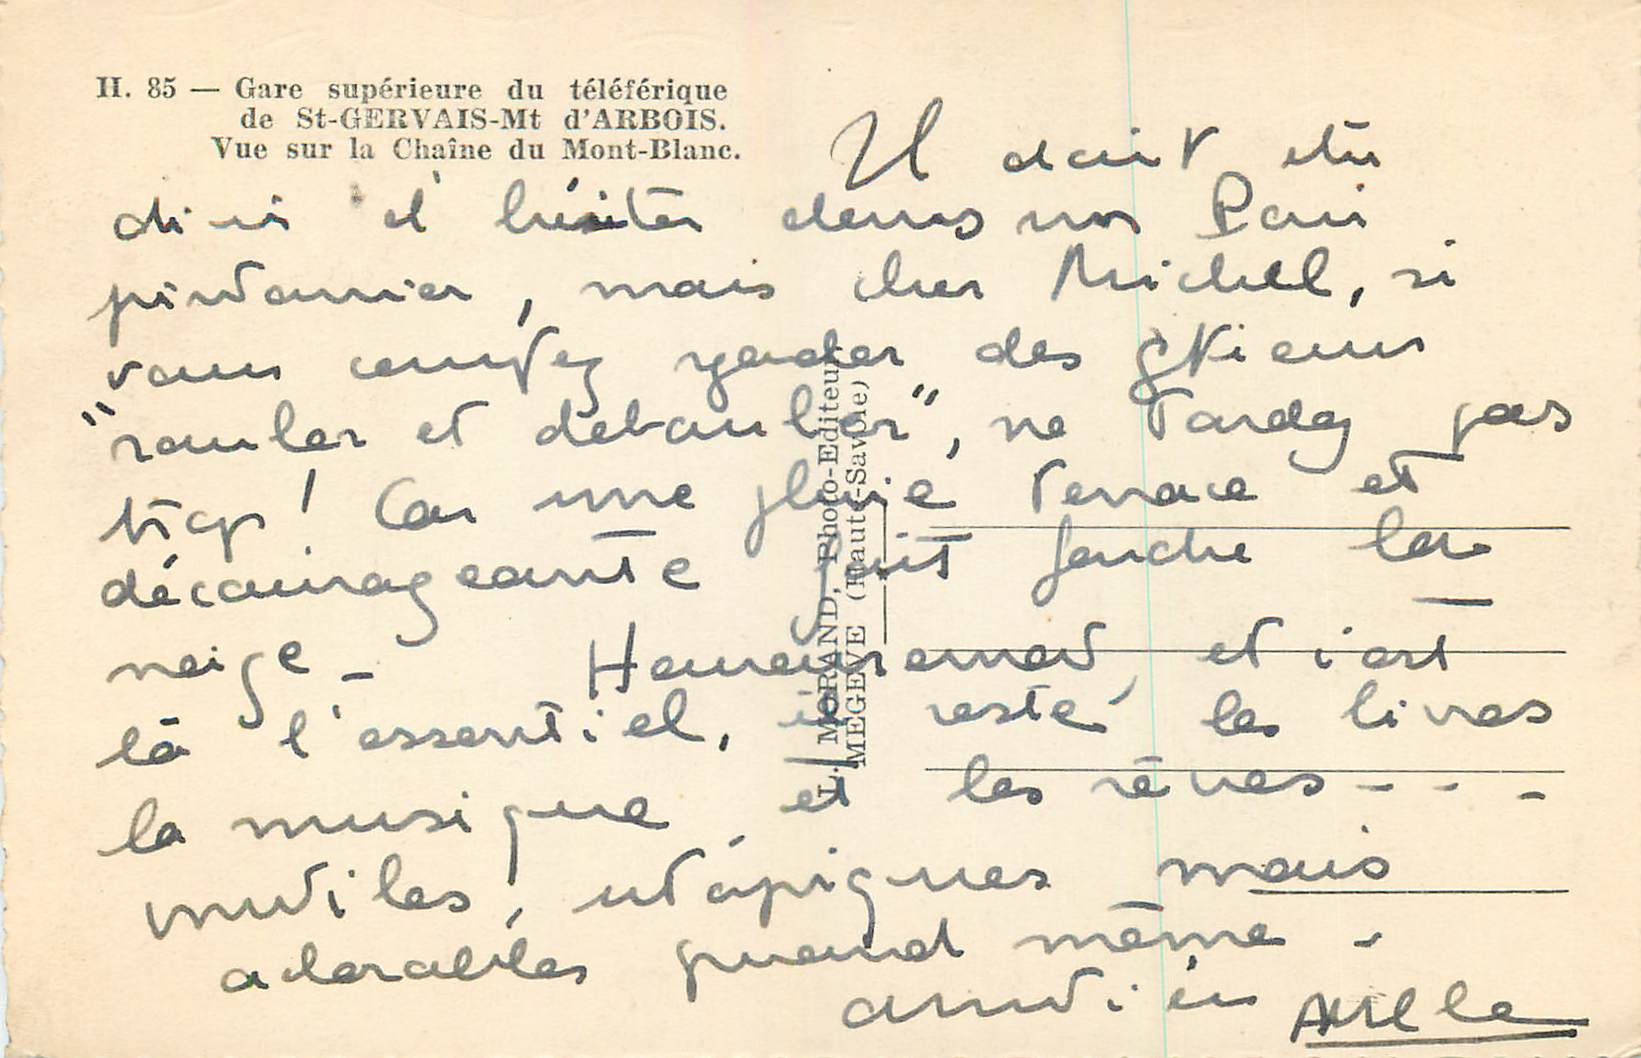 H. 85 — Gare supérieure du téléférique
de St-GERVAIS-Mt d'ARBOIS.
Vue sur la Chaîne du Mont-Blanc.
Il doit être
divin d'hésiter dans nos Paris
printanier, mais cher Michel, si
vous comptez garder des skieurs
"rouler et débouler", ne tardez pas
trop ! Car une pluie tenace et
décourageante fait fondre la
neige - Heureusement, et c'est
là l'essentiel, il reste les livres
la musique, et les rêves - - -
inutiles, utopiques mais
adorables quand même -
amitiés
L. MORAND, Photo-Editeur
MEGÈVE (Haute-Savoie)